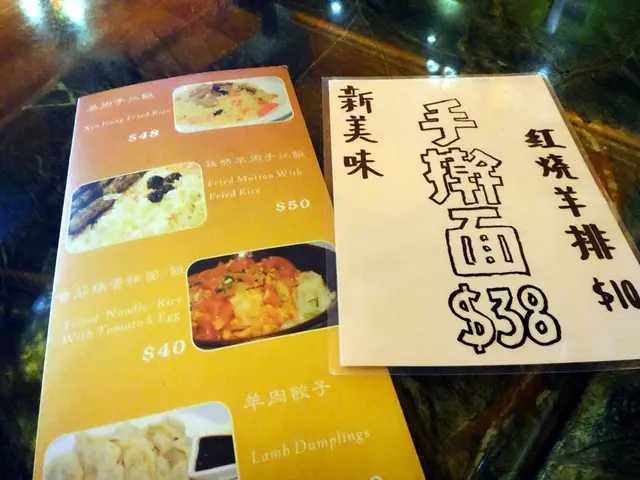 羊肉手扒飯
Xin Jiang Fried Rice
$48
孜然羊肉手扒飯
Fried Mutton With
Fried Rice
$50
番茄雞蛋拌面/飯
Tossed Noodle/Rice
With Tomato & Egg
$40
羊肉餃子
Lamb Dumplings
新美味
手擀面
$38
红烧羊排
$10